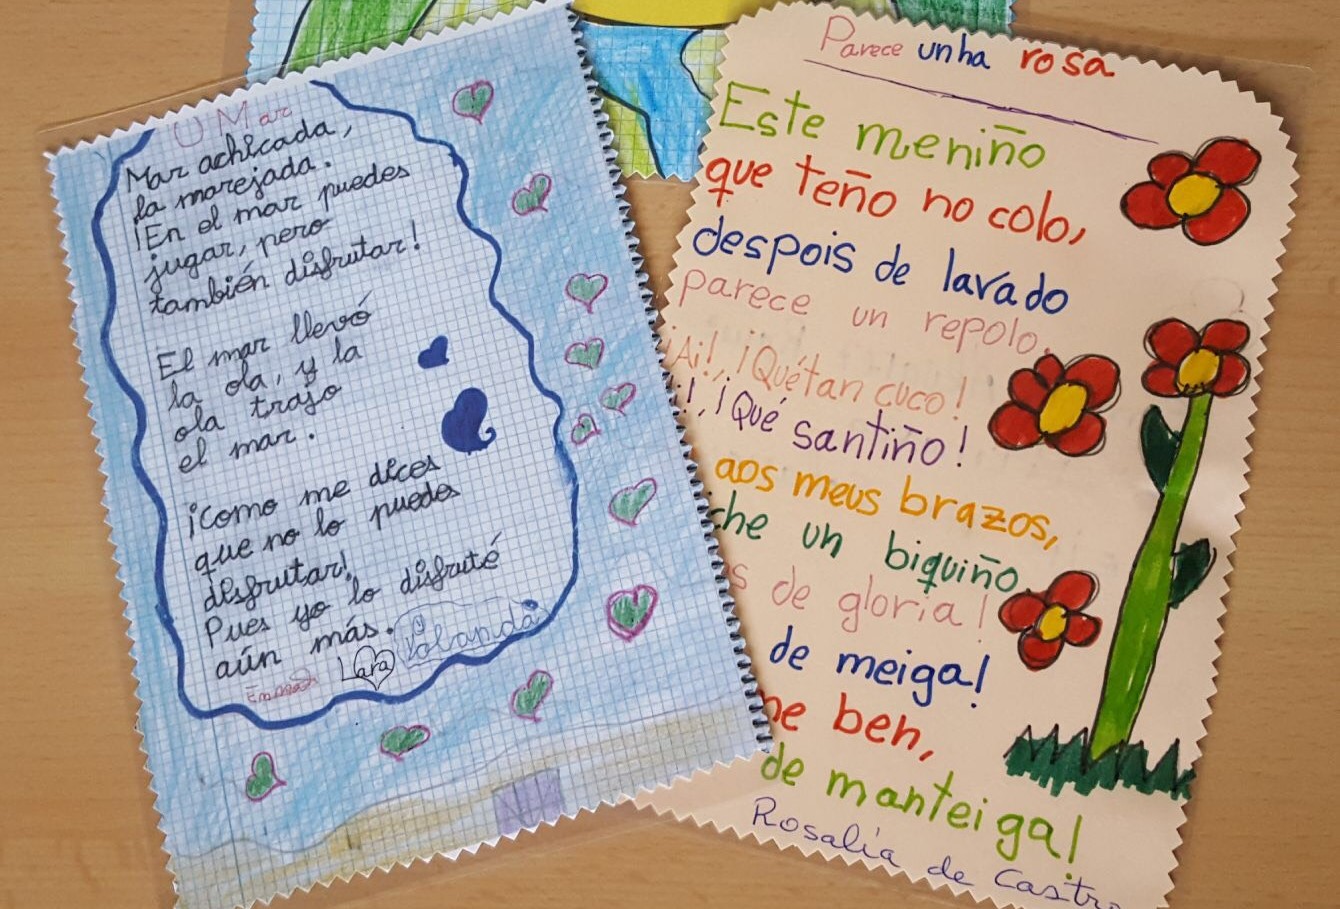 O Mar
Mar achicada,
la marejada.
¡En el mar puedes
jugar, pero
también disfrutar!
El mar llevó
la ola, y la
ola trajo
el mar.
¡Como me dices
que no lo puedes
disfrutar!
Pues yo lo disfruté
aún más.
Lara
Yolanda
Parece unha rosa
Este meniño
que teño no colo,
despois de lavado
parece un repolo.
¡Ai!, ¡Qué tan cuco!
¡Qué santiño!
aos meus brazos,
un biquiño
de gloria!
de meiga!
ben,
de manteiga!
Rosalía de Castro